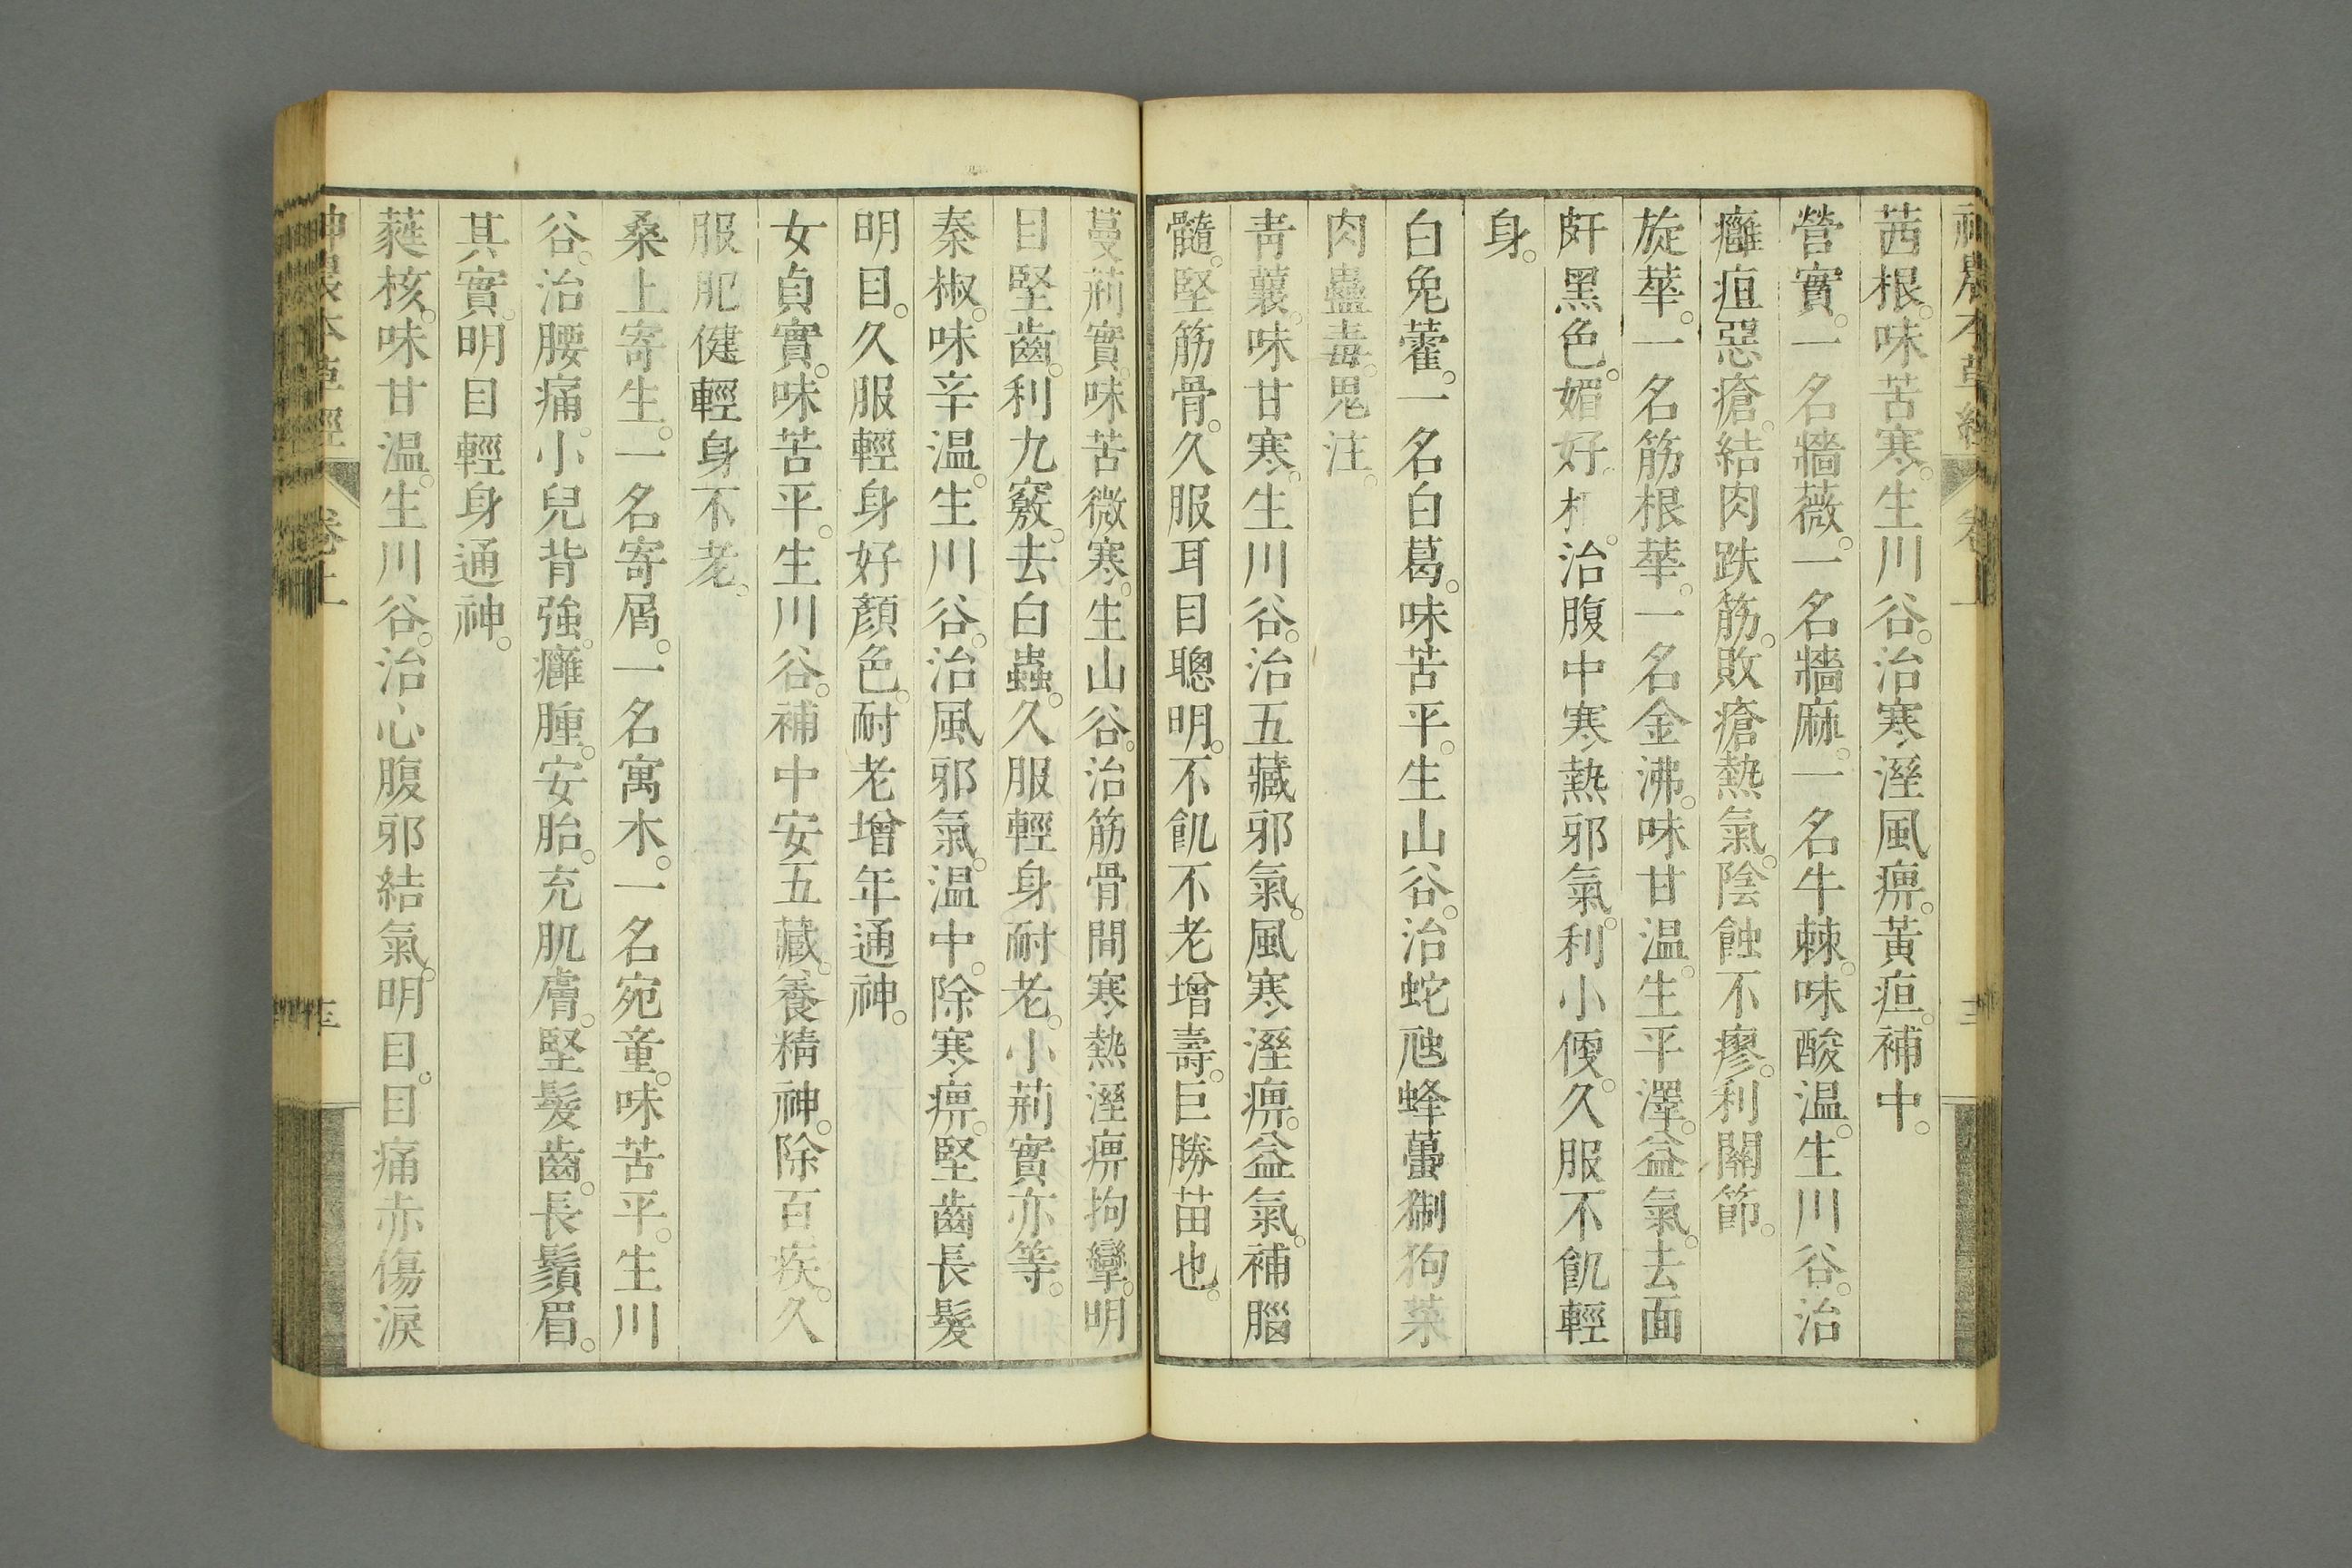 茜根。味苦寒。生川谷。治寒溼風痹。黃疸。補中。
營實。一名牆薇。一名牆麻。一名牛棘。味酸溫。生川谷。治
癰疽惡瘡。結肉跌筋。敗瘡熱氣。陰蝕不瘳。利關節。
旋華。一名筋根華。一名金沸。味甘溫。生平澤。益氣。去面
皯黑色。媚好。根。治腹中寒熱邪氣。利小便。久服不飢輕
身。
白兔藿。一名白葛。味苦平。生山谷。治蛇虺蜂蠆猘狗菜
肉蠱毒。鬼注。
靑蘘。味甘寒。生川谷。治五藏邪氣。風寒溼痹。益氣。補腦
髓。堅筋骨。久服耳目聰明。不飢不老增壽。巨勝苗也。
蔓荊實。味苦微寒。生山谷。治筋骨間寒熱溼痹拘攣。明
目堅齒。利九竅。去白蟲。久服輕身耐老。小荊實亦等。
秦椒。味辛溫。生川谷。治風邪氣。溫中。除寒痹。堅齒長髮
明目。久服輕身好顏色。耐老增年通神。
女貞實。味苦平。生川谷。補中安五藏。養精神。除百疾。久
服肥健輕身不老。
桑上寄生。一名寄屑。一名寓木。一名宛童。味苦平。生川
谷。治腰痛。小兒背強。癰腫。安胎。充肌膚。堅髮齒。長鬚眉。
其實。明目輕身通神。
蕤核。味甘溫。生川谷。治心腹邪結氣。明目。目痛赤傷淚
神農本草經 卷上